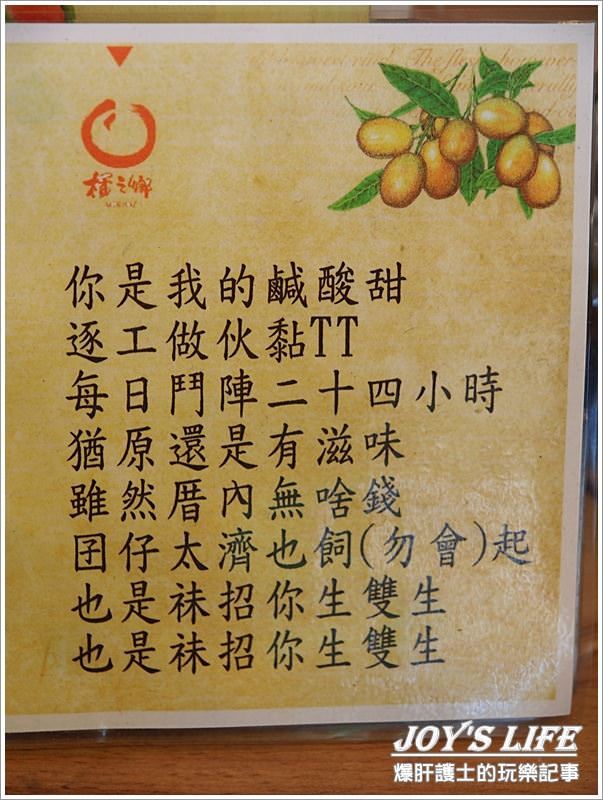 橘之鄉
你是我的鹹酸甜
逐工做伙黏TT
每日鬥陣二十四小時
猶原還是有滋味
雖然厝內無啥錢
囝仔太濟也飼(勿會)起
也是袜招你生雙生
也是袜招你生雙生
JOY'S LIFE
爆肝護士的玩樂記事